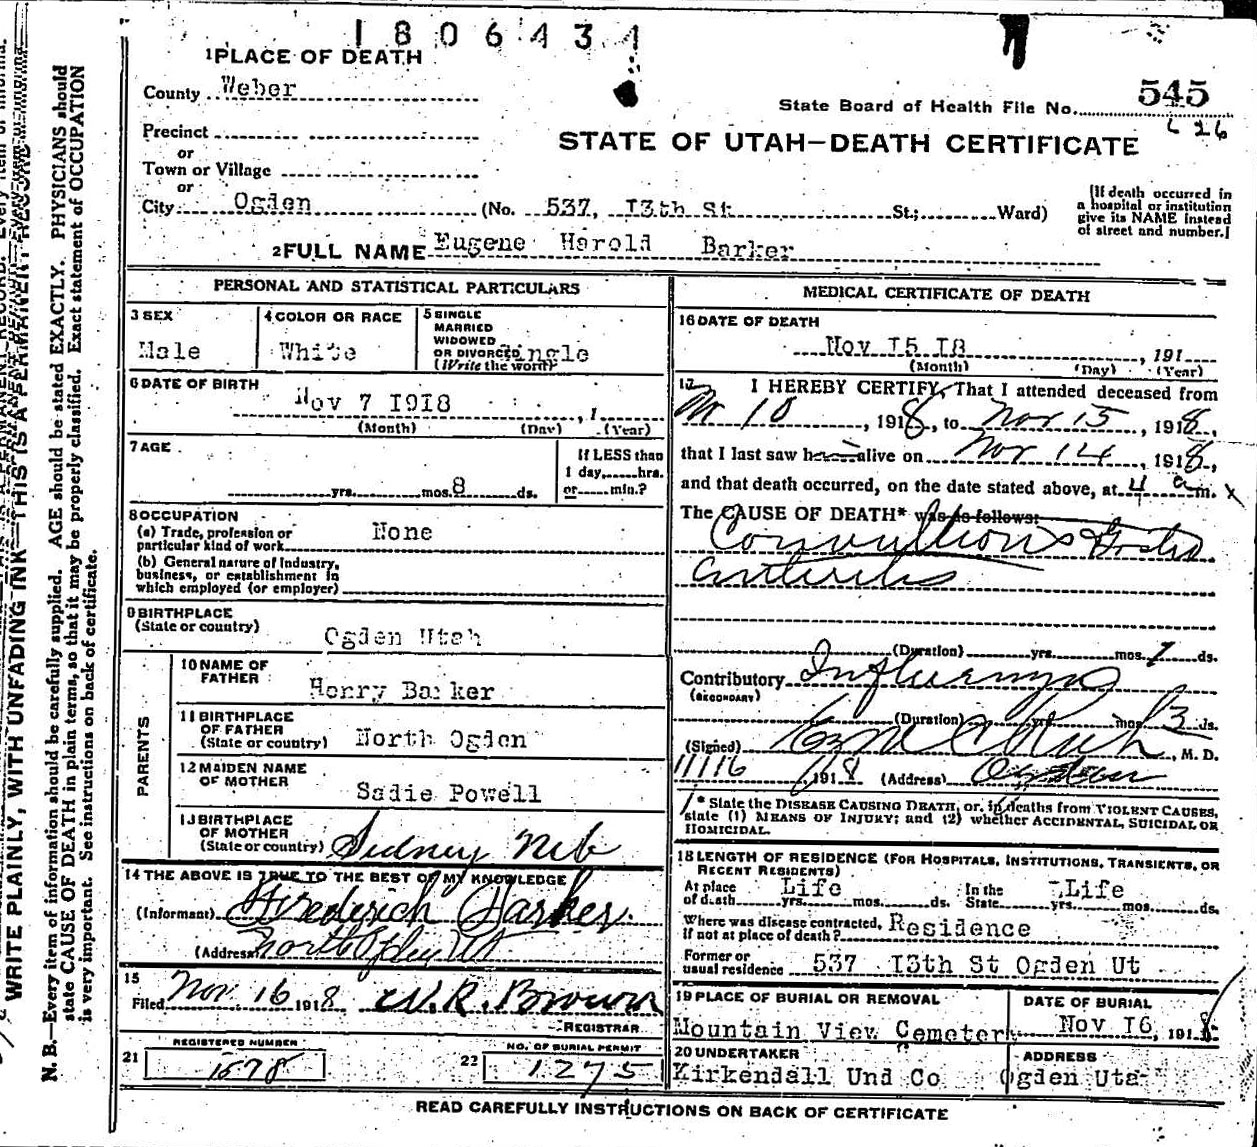 1806434
1 PLACE OF DEATH
County Weber
State Board of Health File No. 545
Precinct
STATE OF UTAH—DEATH CERTIFICATE
or
Town or Village
or
City Ogden (No. 537, I3th St St.; Ward)
[If death occurred in
a hospital or institution
give its NAME instead
of street and number.]
2 FULL NAME Eugene Harold Barker
PERSONAL AND STATISTICAL PARTICULARS
3 SEX
Male
4 COLOR OR RACE
White
5 SINGLE
MARRIED
WIDOWED
OR DIVORCED Single
(Write the word)
6 DATE OF BIRTH
Nov 7 I9I8 , 1
(Month) (Day) (Year)
7 AGE
yrs. mos. 8 ds.
If LESS than
1 day, hrs.
or min.?
8 OCCUPATION
(a) Trade, profession or
particular kind of work None
(b) General nature of Industry,
business, or establishment in
which employed (or employer)
9 BIRTHPLACE
(State or country) Ogden Utah
PARENTS
10 NAME OF
FATHER Henry Barker
11 BIRTHPLACE
OF FATHER
(State or country) North Ogden
12 MAIDEN NAME
OF MOTHER Sadie Powell
13 BIRTHPLACE
OF MOTHER
(State or country) Sidney Neb
14 THE ABOVE IS TRUE TO THE BEST OF MY KNOWLEDGE
(Informant) Frederich Barker.
(Address) North Ogden Ut
15
Filed Nov 16 1918 W. R. Brown
REGISTRAR
REGISTERED NUMBER
21 1578
NO. OF BURIAL PERMIT
22 1275
MEDICAL CERTIFICATE OF DEATH
16 DATE OF DEATH
Nov I5 I8 , 191
(Month) (Day) (Year)
17 I HEREBY CERTIFY, That I attended deceased from
10 , 1918, to Nov 15 , 1918,
that I last saw h alive on Nov 14 , 1918,
and that death occurred, on the date stated above, at 4 a m.
The CAUSE OF DEATH* was as follows:
Convultions Gastro
enteritis
(Duration) yrs. mos. 7 ds.
Contributory Influenza
(SECONDARY)
(Duration) yrs. mos. 3 ds.
(Signed) , M. D.
11/16 1918 (Address) Ogden
* State the DISEASE CAUSING DEATH, or, in deaths from VIOLENT CAUSES,
state (1) MEANS OF INJURY; and (2) whether ACCIDENTAL, SUICIDAL OR
HOMICIDAL.
18 LENGTH OF RESIDENCE (FOR HOSPITALS, INSTITUTIONS, TRANSIENTS, OR
RECENT RESIDENTS)
At place of death Life yrs. mos. ds. In the State Life yrs. mos. ds.
Where was disease contracted,
If not at place of death? Residence
Former or
usual residence 537 I3th St Ogden Ut
19 PLACE OF BURIAL OR REMOVAL
Mountain View Cemeter
DATE OF BURIAL
Nov I6 , 1918
20 UNDERTAKER
Kirkendall Und Co
ADDRESS
Ogden Uta
READ CAREFULLY INSTRUCTIONS ON BACK OF CERTIFICATE
WRITE PLAINLY, WITH UNFADING INK—THIS IS A PERMANENT RECORD
N. B.—Every item of information should be carefully supplied. AGE should be stated EXACTLY. PHYSICIANS should
state CAUSE OF DEATH in plain terms, so that it may be properly classified. Exact statement of OCCUPATION
is very important. See instructions on back of certificate.